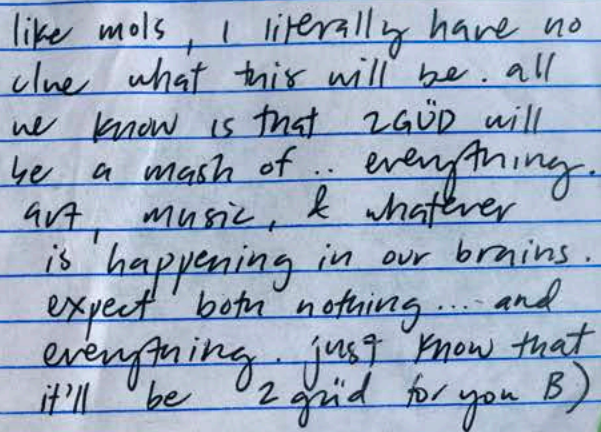 like mols, I literally have no
clue what this will be. all
we know is that 2GÜD will
be a mash of .. everything.
art, music, & whatever
is happening in our brains.
expect both nothing... and
everything. just know that
it'll be 2 güd for you B)